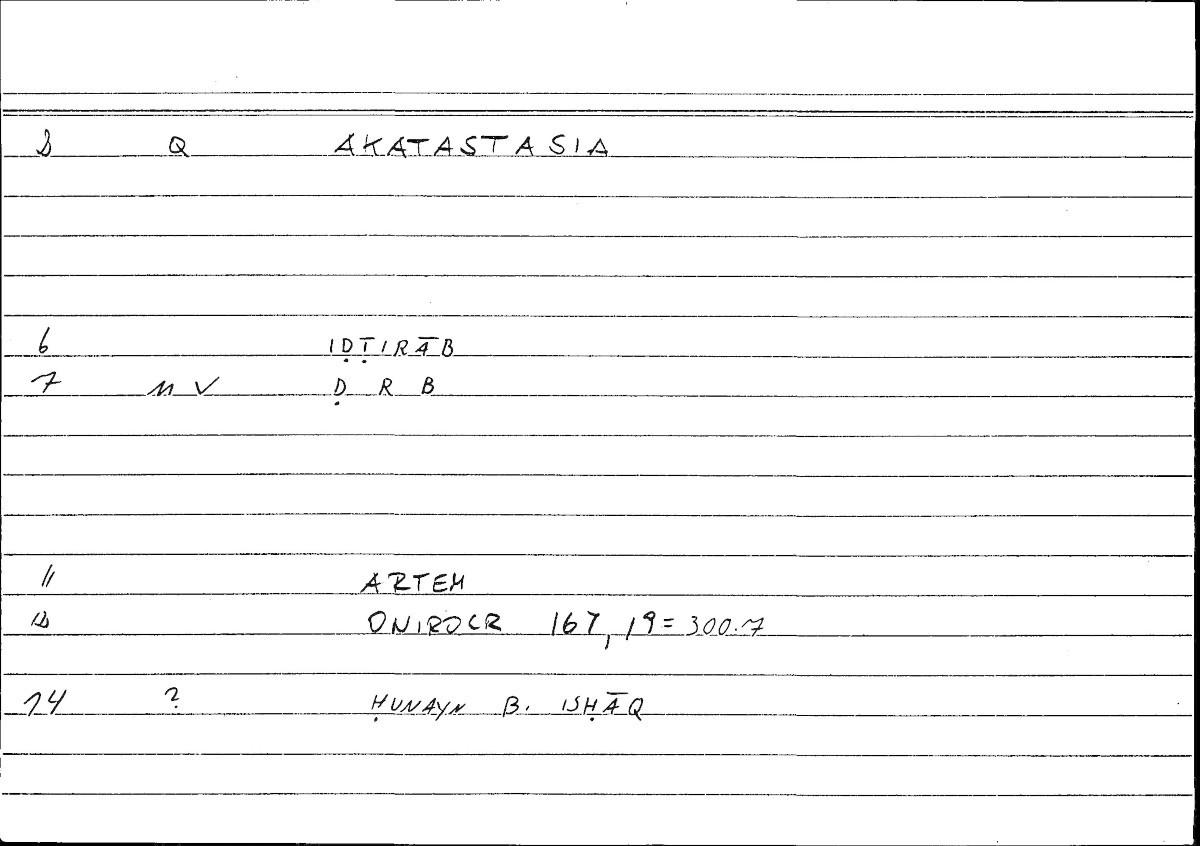 Q AKATASTASIA
6 IḌṬIRĀB
7 NV Ḍ R B
11 ARTEM
12 ONIROCR 167, 19 = 300.7
14 ? ḤUNAYN B. ISḤĀQ